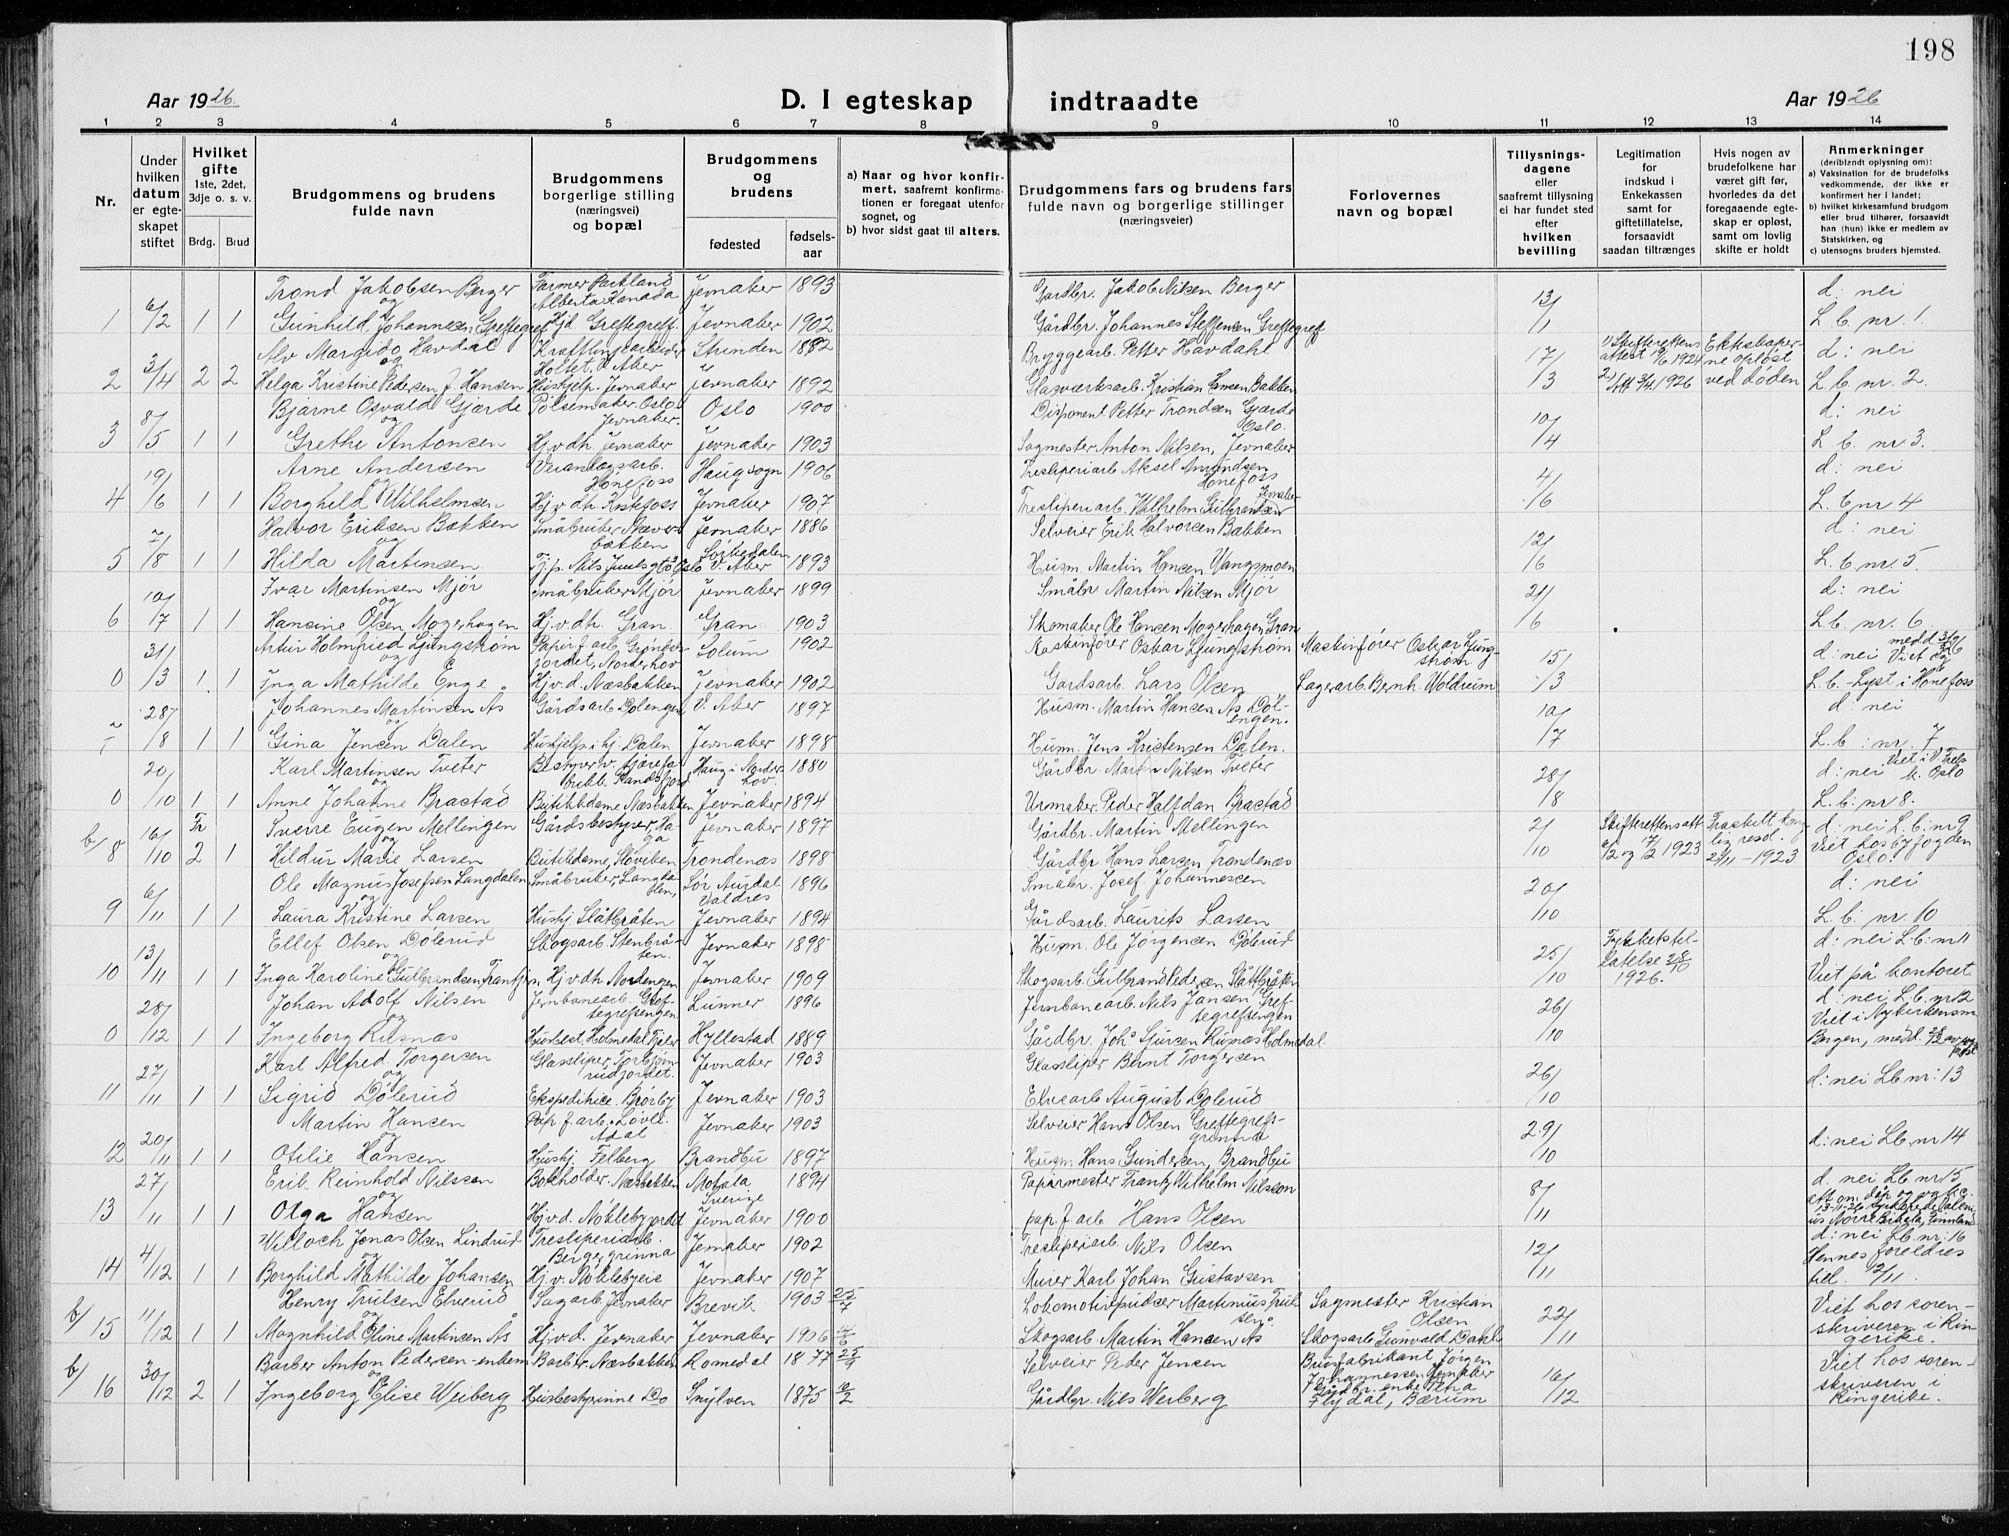 198
Aar 1926.
D. I egteskap indtraadte
Aar 1926
1 2 3 4 5 6 7 8 9 10 11 12 13 14
Nr.
Under hvilken datum er egteskapet stiftet
Hvilket gifte 1ste, 2det, 3dje o. s. v.
Brdg. Brud
Brudgommens og brudens fulde navn
Brudgommens borgerlige stilling (næringsvei) og bopæl
Brudgommens og brudens
fødested
fødselsaar
a) Naar og hvor konfirmert, saafremt konfirmationen er foregaat utenfor sognet, og
b) hvor sidst gaat til alters.
Brudgommens fars og brudens fars fulde navn og borgerlige stillinger (næringsveier)
Forlovernes navn og bopæl
Tillysningsdagene eller saafremt tillysning ei har fundet sted efter hvilken bevilling
Legitimation for indskud i Enkekassen samt for giftetillatelse, forsaavidt saadan tiltrænges
Hvis nogen av brudefolkene har været gift før, hvorledes da det foregaaende egteskap er opløst, samt om lovlig skifte er holdt
Anmerkninger (deriblendt oplysning om):
a) Vaksination for de brudefolks vedkommende, der ikke er konfirmert her i landet;
b) hvilket kirkesamfund brudgom eller brud tilhører, forsaavidt han (hun) ikke er medlem av Statskirken, og
c) utensogns bruders hjemsted.
Trond Jakobsen Berger Farmer Parkland Alberta Kanada Jevnaker 1893 Gardbr. Jakob Nilsen Berger 13/1 d: nei
1 6/2 1 1 og Gunhild Johannesen Greftegref Hjd Greftegreff. Jevnaker 1902 Gårdbr. Johannes Steffensen Greftegreff L.b. nr. 1.
Alv Margido Havdal Kraftlinjearbeider Holtet, Ø. Aker Strinden 1882 Bryggearb. Petter Havdahl 17/3 1) Skifterettens attest 19/6 1924 Ekteskaperne opløst d: nei
2 3/4 2 2 og Helga Kristine Pedersen f. Hansen Hushjelp. Jevnaker Jevnaker 1892 Glasværksarb. Kristian Hansen Bakken 2) Att 3/4 1926 ved døden L.b. nr. 2.
Bjarne Osvald Gjærde Pølsemaker Oslo Jevnaker. Oslo 1900 Disponent Petter Trondsen Gjærde Oslo. 10/4 d: nei
3 8/5 1 1 og Grethe Antonsen Hj.v.dh Jevnaker Jevnaker 1903 Sagmester Anton Nilsen, Jevnaker L.b. nr 3.
Arne Andersen Hønefoss Haug sogn 1906 Tresliperiarb Aksel Amundsen Hønefoss 4/6 d: nei
4 19/6 1 1 Borghild Wilhelmsen Hj.v.dh. Kistefoss Jevnaker 1907 Tresliperiarb. Wilhelm Gulbrandsen Jevnaker L.b nr 4
Halvor Eriksen Bakken Småbruker bakken Jevnaker 1886 Selveier Erik Halvorsen Bakken 12/6 d: nei
5 7/8 1 1 og Hilda Martinsen Tj.p. Nils Juulsgt Oslo Sørkedalen V. Aker 1893 Husm. Martin Hansen Vangsmoen L.b. nr. 5.
Ivar Martinsen Mjør Småbruker Mjør Jevnaker 1899 Småbr. Martin Nilsen Mjør 21/6 d: nei
6 10/7 1 1 og Hansine Olsen Mogerhagen Hj.v.dh. Gran Gran 1903 Skomaker Ole Hansen Mogerhagen Gran L.b. nr. 6.
Artur Holmfred Ljungstrøm Papirf.arb. Grønkerjordet, Norderhov Solum 1902 Maskinfører Oskar Ljungstrøm Maskinfører Oskar Ljungstrøm 15/3 d: nei Viet og
0 31/3 1 1 og Inga Mathilde Enge Hj.v.d. Næsbakken Jevnaker 1902 Gardsarb. Lars Olsen Lagerarb. Bernh. Woldrum L.b. - lyst i Hønefoss
Johannes Martinsen Ås Gårdsarb Dølengen V. Aker 1897 Husm. Martin Hansen Ås Dølengen. 10/7 d: nei
7 28/8 1 1 og Gina Jensen Dalen Hushjelp i hj. Dalen Jevnaker 1898 Husm. Jens Kristensen Dalen. L.b: nr. 7
Karl Martinsen Tveter Bestyrer v. Haug i Norderhov 1880 Gårdbr. Martin Nilsen Tveter 28/8 d: nei Oslo
0 20/10 1 1 og Anne Johanne Brastad Butikkdame Næsbakken Jevnaker 1894 Urmaker Peder Halfdan Brastad L.b: nr 8.
Sverre Eugen Mellengen Gårdsbestyrer, Haga Jevnaker 1897 Gårdbr. Martin Mellingen 2/10 Skifterettens att. d: nei L.b: nr 9
b/8 16/10 Fr 2 1 og Hildur Marie Larsen Butikdame, Støviken Trondenæs 1898 Gårdbr Hans Larsen Trandenæs 1923 resd. 23/11-1923 Viet hos byfogden Oslo.
Ole Magnus Josefsen Langdalen Småbruker, Langdalen, Sør Aurdal Valdres 1896 Småbr. Josef Johannessen 20/10 d: nei
9 6/11 1 1 og Laura Kristine Larsen Hushj Slåtbråten Jevnaker 1894 Gårdsarb. Laurits Larsen L.b. nr. 10
Ellef Olsen Dølerud Skogsarb Stenbråten. Jevnaker 1898 Husm. Ole Jørgensen Dølerud 25/10 d: nei L.b: nr 11
10 13/11 1 1 og Inga Karoline Gulbrandsen Trantjern Hj.v.dh. Nordengen Jevnaker 1909 Skogsarb. Gulbrand Pedersen Slåttbråten 28/10 1926. Viet på kontoret
Johan Adolf Nilsen Jernbanearb. Greftegrefsengen Lunner 1896 Jernbanearb. Nils Jansen Greftegrefsengen 26/10 d: nei L.b. nr 12
0 28/12 1 1 og Ingeborg Rusnæs Husbest. Holmedal Fjaler Hyllestad 1889 Gårdbr. Johs Sjursen Rusnæs Holmedal Viet i Nykirken Bergen, medd.
Karl Alfred Torgersen Glassliper, Torbjørnrudjordet. Jevnaker 1903 Glassliper Bernt Torgersen 26/10
11 27/11 1 1 og Sigrid Dølerud Ekspeditrice. Brørby Jevnaker 1903 Elvearb August Dølerud d: nei L.b nr: 13
Martin Hansen Pap.f.arb. Løvlia Ådal Jevnaker 1903 Selveier Hans Olsen Greftegrefsgrinna 29/10
12 20/11 1 1 og Otilie Hansen Hushj Felberg Brandbu 1897 Husm. Hans Gundersen, Brandbu d: nei L.b nr 14
Erik Reinhold Nilsson Bokholder. Næsbakken Motala Sverige 1894 Papirmester Frantz Wilhelm Nilsson 8/11 d. nei L.b nr. 15
13 27/11 1 1 og Olga Hansen Hj.v.d. Nøklebyjordet Jevnaker 1900 pap.f.arb Hans Olsen att om dåp og
Willoch Jonas Olsen Lindrud Tresliperiarb. Bergergrinna Jevnaker 1902 Tresliperiarb. Nils Olsen 12/11 d: nei L.b nr: 16
14 4/12 1 1 og Borghild Mathilde Johansen Hj.v. Nøklebyeie Jevnaker 1907 Murer Karl Johan Gustavsen Hennes foreldres til. 12/11.
Henry Trulsen Elverud Sagarb. Jevnaker Brevik 1903 25/7 Lokomotivpudser Martinius Trulsen. Sagmester Kristian Olsen 22/11 Viet hos sorenskriveren i Ringerike.
b/15 11/12 1 1 og Magnhild Eline Martinsen Ås Hj.v.d. Jevnaker Jevnaker 1906 Skogsarb. Martin Hansen Ås Skogsarb Gunvald Dahl
Barber Anton Pedersen - enkem Barber Næsbakken Romedal 1877 25/9 Selveier Peder Jensen Brusfabrikant Jørgen Johannessen Jevnaker 16/12 Viet hos sorenskriveren i Ringerike.
b/16 30/12 2 1 og Ingeborg Elise Weiberg Husbestyrinne Do Smylven 1875 Gårdbr. Nils Weiberg Gårdbr. enke Flydal, Bærum